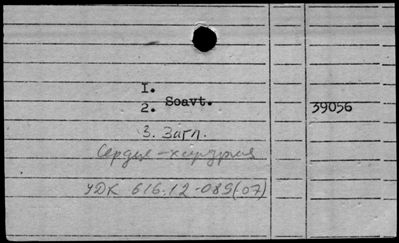 I.
2. Soavt.
39056
3. Загл.
Сердце - хирургия
УДК 616.12-089(07)